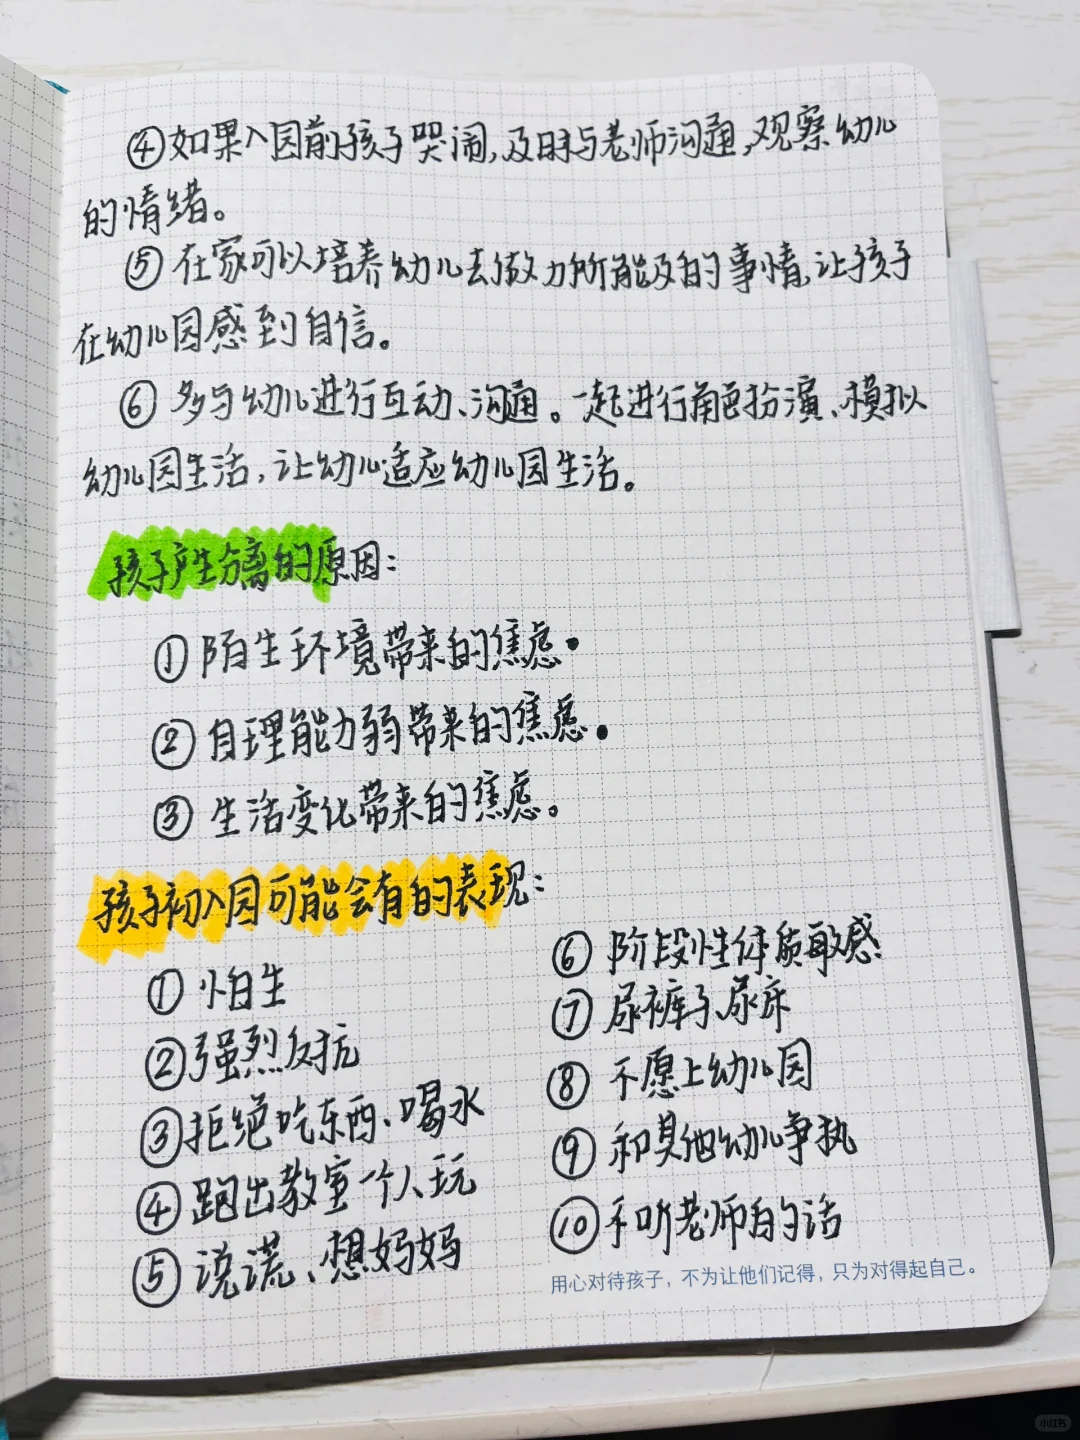 ④如果入园前孩子哭闹,及时与老师沟通,观察幼儿
的情绪。
⑤在家可以培养幼儿去做力所能及的事情,让孩子
在幼儿园感到自信。
⑥多与幼儿进行互动、沟通。一起进行角色扮演、模拟
幼儿园生活,让幼儿适应幼儿园生活。
孩子产生分离的原因:
①陌生环境带来的焦虑.
②自理能力弱带来的焦虑.
③生活变化带来的焦虑。
孩子初入园可能会有的表现:
①怕生
②强烈反抗
③拒绝吃东西、喝水
④跑出教室一个人玩
⑤说谎、想妈妈
⑥阶段性体质敏感
⑦尿裤子、尿床
⑧不愿上幼儿园
⑨和其他幼儿争执
⑩不听老师的话
用心对待孩子，不为让他们记得，只为对得起自己。
小红书